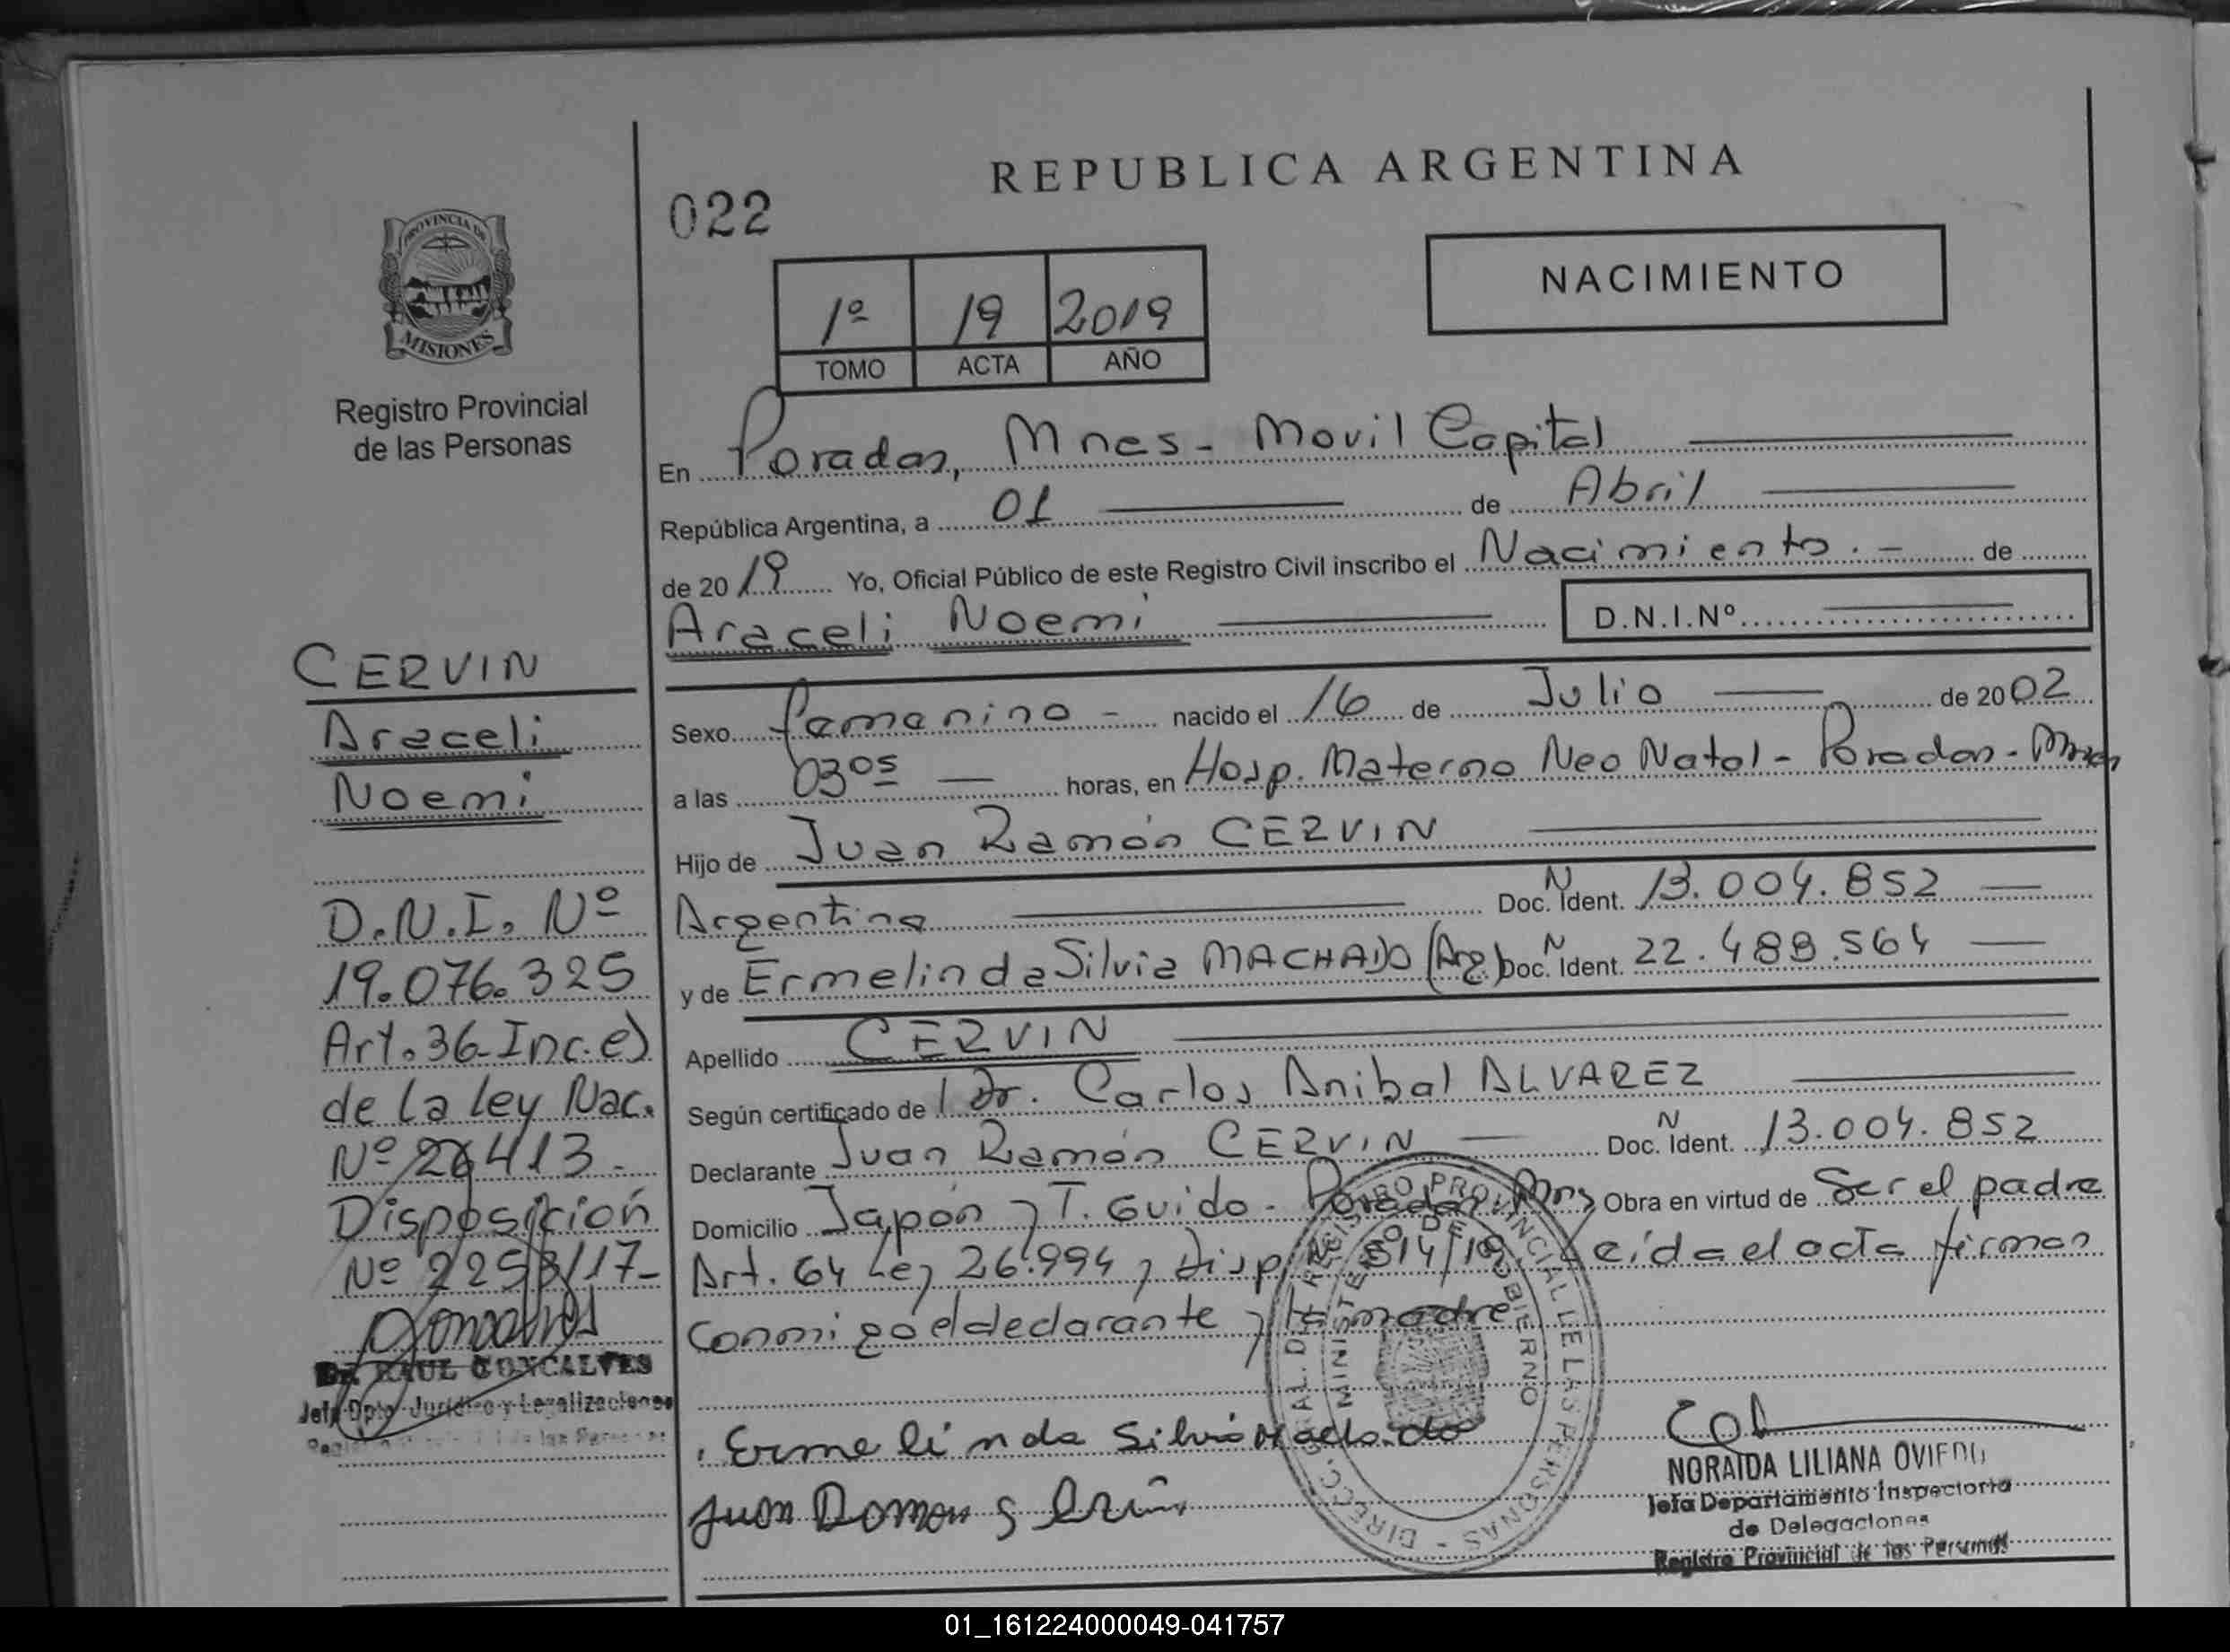 REPUBLICA ARGENTINA
022
NACIMIENTO
1º 19 2019
TOMO ACTA AÑO
PROVINCIA DE
MISIONES
Registro Provincial
de las Personas
En Posadas, Mnes - Movil Capital
República Argentina, a 01 de Abril
de 2019 Yo, Oficial Público de este Registro Civil inscribo el Nacimiento.- de
Araceli Noemi D.N.I.Nº
Sexo femenino - nacido el 16 de Julio de 2002
a las 0305 horas, en Hosp. Materno Neo Natal - Posadas - Mnes
Hijo de Juan Ramón CERVIN
Argentina Doc. N Ident. 13.004.852
y de Ermelinda Silvia MACHADO (Arg.) Doc. N Ident. 22.489.564
Apellido CERVIN
Según certificado de Dr. Carlos Anibal ALVAREZ
Declarante Juan Ramón CERVIN Doc. N Ident. 13.004.852
Domicilio Japón y T. Guido - Posadas, Mns Obra en virtud de Ser el padre
Art. 64 Ley 26.994 y Disp. Nº 314/19 Leída el acta firman
conmigo el declarante y la madre
Ermelinda Silvia Machado
Juan Ramon
NORAIDA LILIANA OVIEDO
Jefa Departamento Inspectoria
de Delegaciones
Registro Provincial de las Personas
DIRECC. GRAL. DEL REGISTRO PROVINCIAL DE LAS PERSONAS
MINISTERIO DE GOBIERNO
CERVIN
Araceli
Noemi
D.N.I. Nº
19.076.325
Art. 36 - Inc. e)
de la Ley Nac.
Nº 26413.
Disposición
Nº 2253/17-
Goncalves
Dr. RAUL GONCALVES
Jefe Dpto. Jurídico y Legalizaciones
01_161224000049-041757